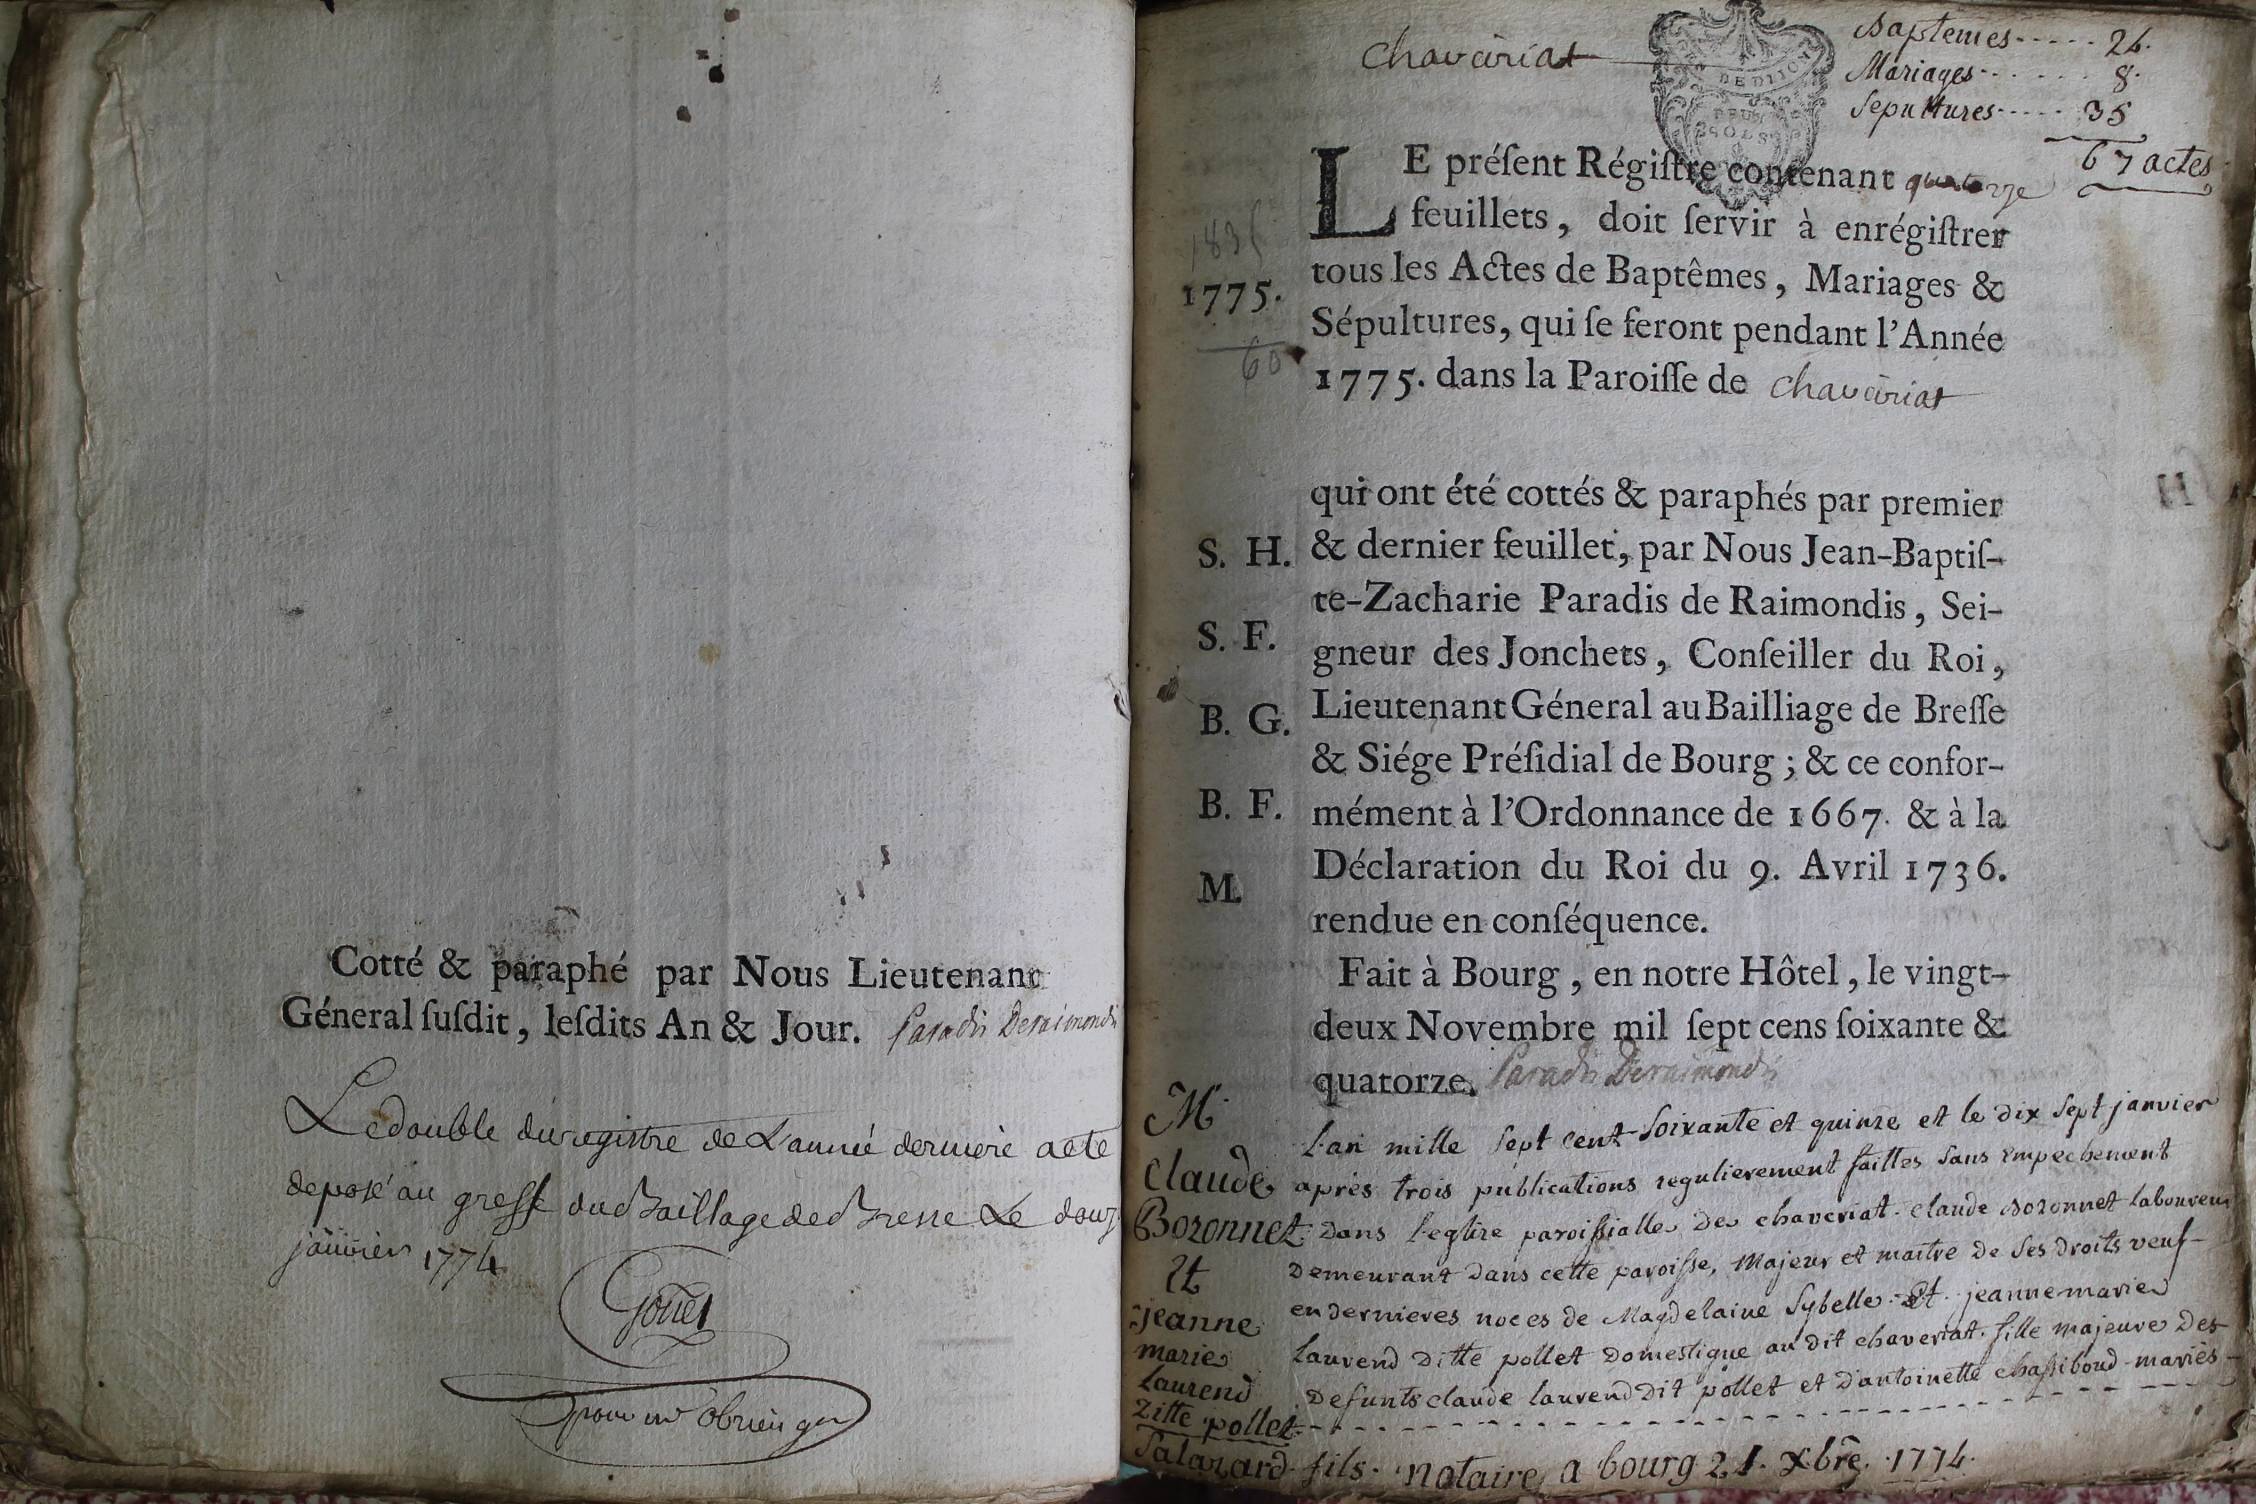 Cotté & paraphé par Nous Lieutenant
Géneral ſuſdit, leſdits An & Jour. Paradis Deraimondis
Le double du registre de L'année derniere a ete
deposé au greffe du Baillage de Bresse Le douze
janvier 1774
pour mr obrien
chavèriat
DE DIJON
DEUX
SOLS
Baptemes ----- 24.
Mariages ------ 8.
Sepultures ----- 35
67 actes
LE préſent Régiſtre contenant quatorze
feuillets, doit ſervir à enrégiſtrer
tous les Actes de Baptêmes, Mariages &
Sépultures, qui ſe feront pendant l'Année
1775. dans la Paroiſſe de chavèriat
1835
1775.
60
qui ont été cottés & paraphés par premier
& dernier feuillet, par Nous Jean-Baptiſ-
te-Zacharie Paradis de Raimondis, Sei-
gneur des Jonchets, Conſeiller du Roi,
Lieutenant Géneral au Bailliage de Breſſe
& Siége Préſidial de Bourg ; & ce confor-
mément à l'Ordonnance de 1667. & à la
Déclaration du Roi du 9. Avril 1736.
rendue en conſéquence.
S. H.
S. F.
B. G.
B. F.
M.
Fait à Bourg, en notre Hôtel, le vingt-
deux Novembre mil ſept cens ſoixante &
quatorze. Paradis Deraimondis
M.
Claude
Boronnet
Et
jeanne
marie
Laurend
ditte pollet
L'an mille sept cent soixante et quinze et le dix sept janvier
après trois publications regulierement faittes sans empechement
Dans l'eglise paroissialle De chaveriat claude Boronnet laboureur
Demeurant Dans cette paroisse, Majeur et maitre De ses droits veuf
en dernieres noces de Magdelaine Sybelle Et jeanne marie
Laurend Ditte pollet Domestique au dit chaveriat fille majeure Des
Defunts claude laurend Dit pollet et D'antoinette chassiboud mariés
Salazard fils notaire a bourg 21 xbre 1774